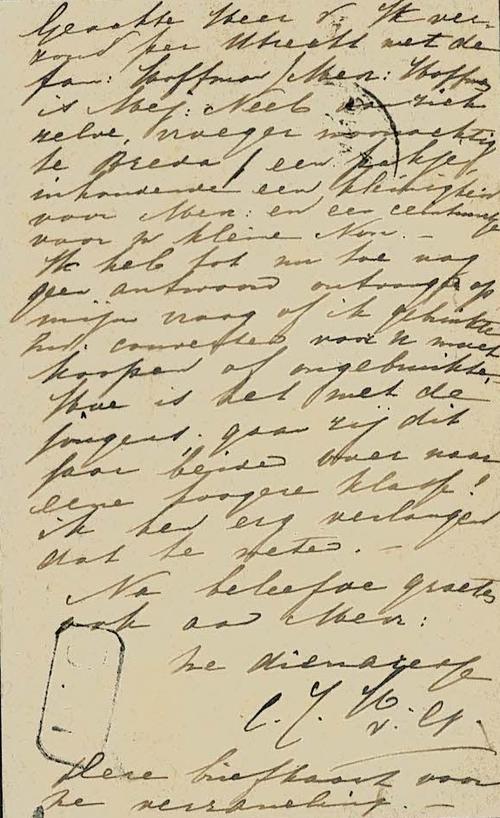 Geachte Heer v. Ik ver-
zond per Utrecht met de
fam: Hoffman / Mevr: Hoffman
is Mej: Neeb van zich
zelve, vroeger woonachtig
te Breda / een pakje,
inhoudende een kleinigheid
voor Mevr: en een
voor uw kleine Non. —
Ik heb tot nu toe nog
geen antwoord ontvangen op
mijn vraag of ik gebruikte
couverten voor u moet
koopen of ongebruikte.
Hoe is het met de
jongens, gaan zij dit
jaar beide over naar
eene hoogere klasse!
ik ben erg verlangend
dat te weten. —
Na beleefde groeten
ook aan Mevr:
Uw
C. J.
Deze briefkaart voor
uw verzameling. —